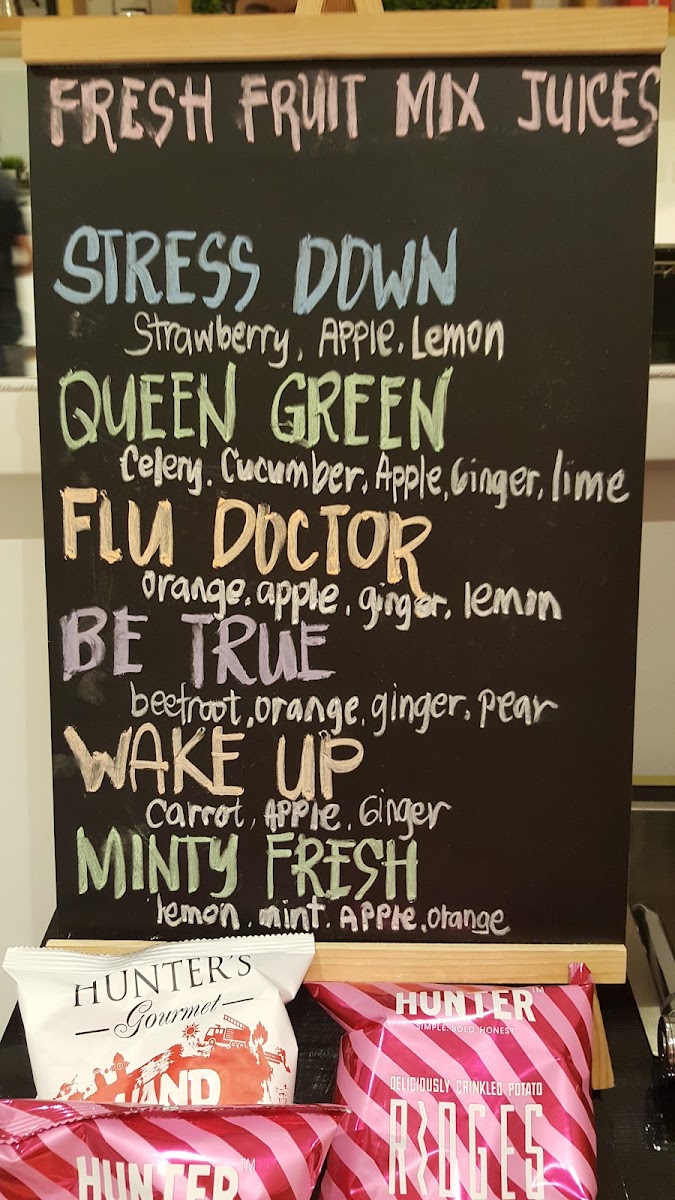 FRESH FRUIT MIX JUICES
STRESS DOWN
Strawberry, Apple, Lemon
QUEEN GREEN
Celery, Cucumber, Apple, Ginger, lime
FLU DOCTOR
orange, apple, ginger, lemon
BE TRUE
beetroot, orange, ginger, pear
WAKE UP
Carrot, Apple, Ginger
MINTY FRESH
lemon, mint, Apple, orange
HUNTER'S
Gourmet
HAND
HUNTER™
SIMPLE. BOLD. HONEST
DELICIOUSLY CRINKLED POTATO
RIDGES
HUNTER™